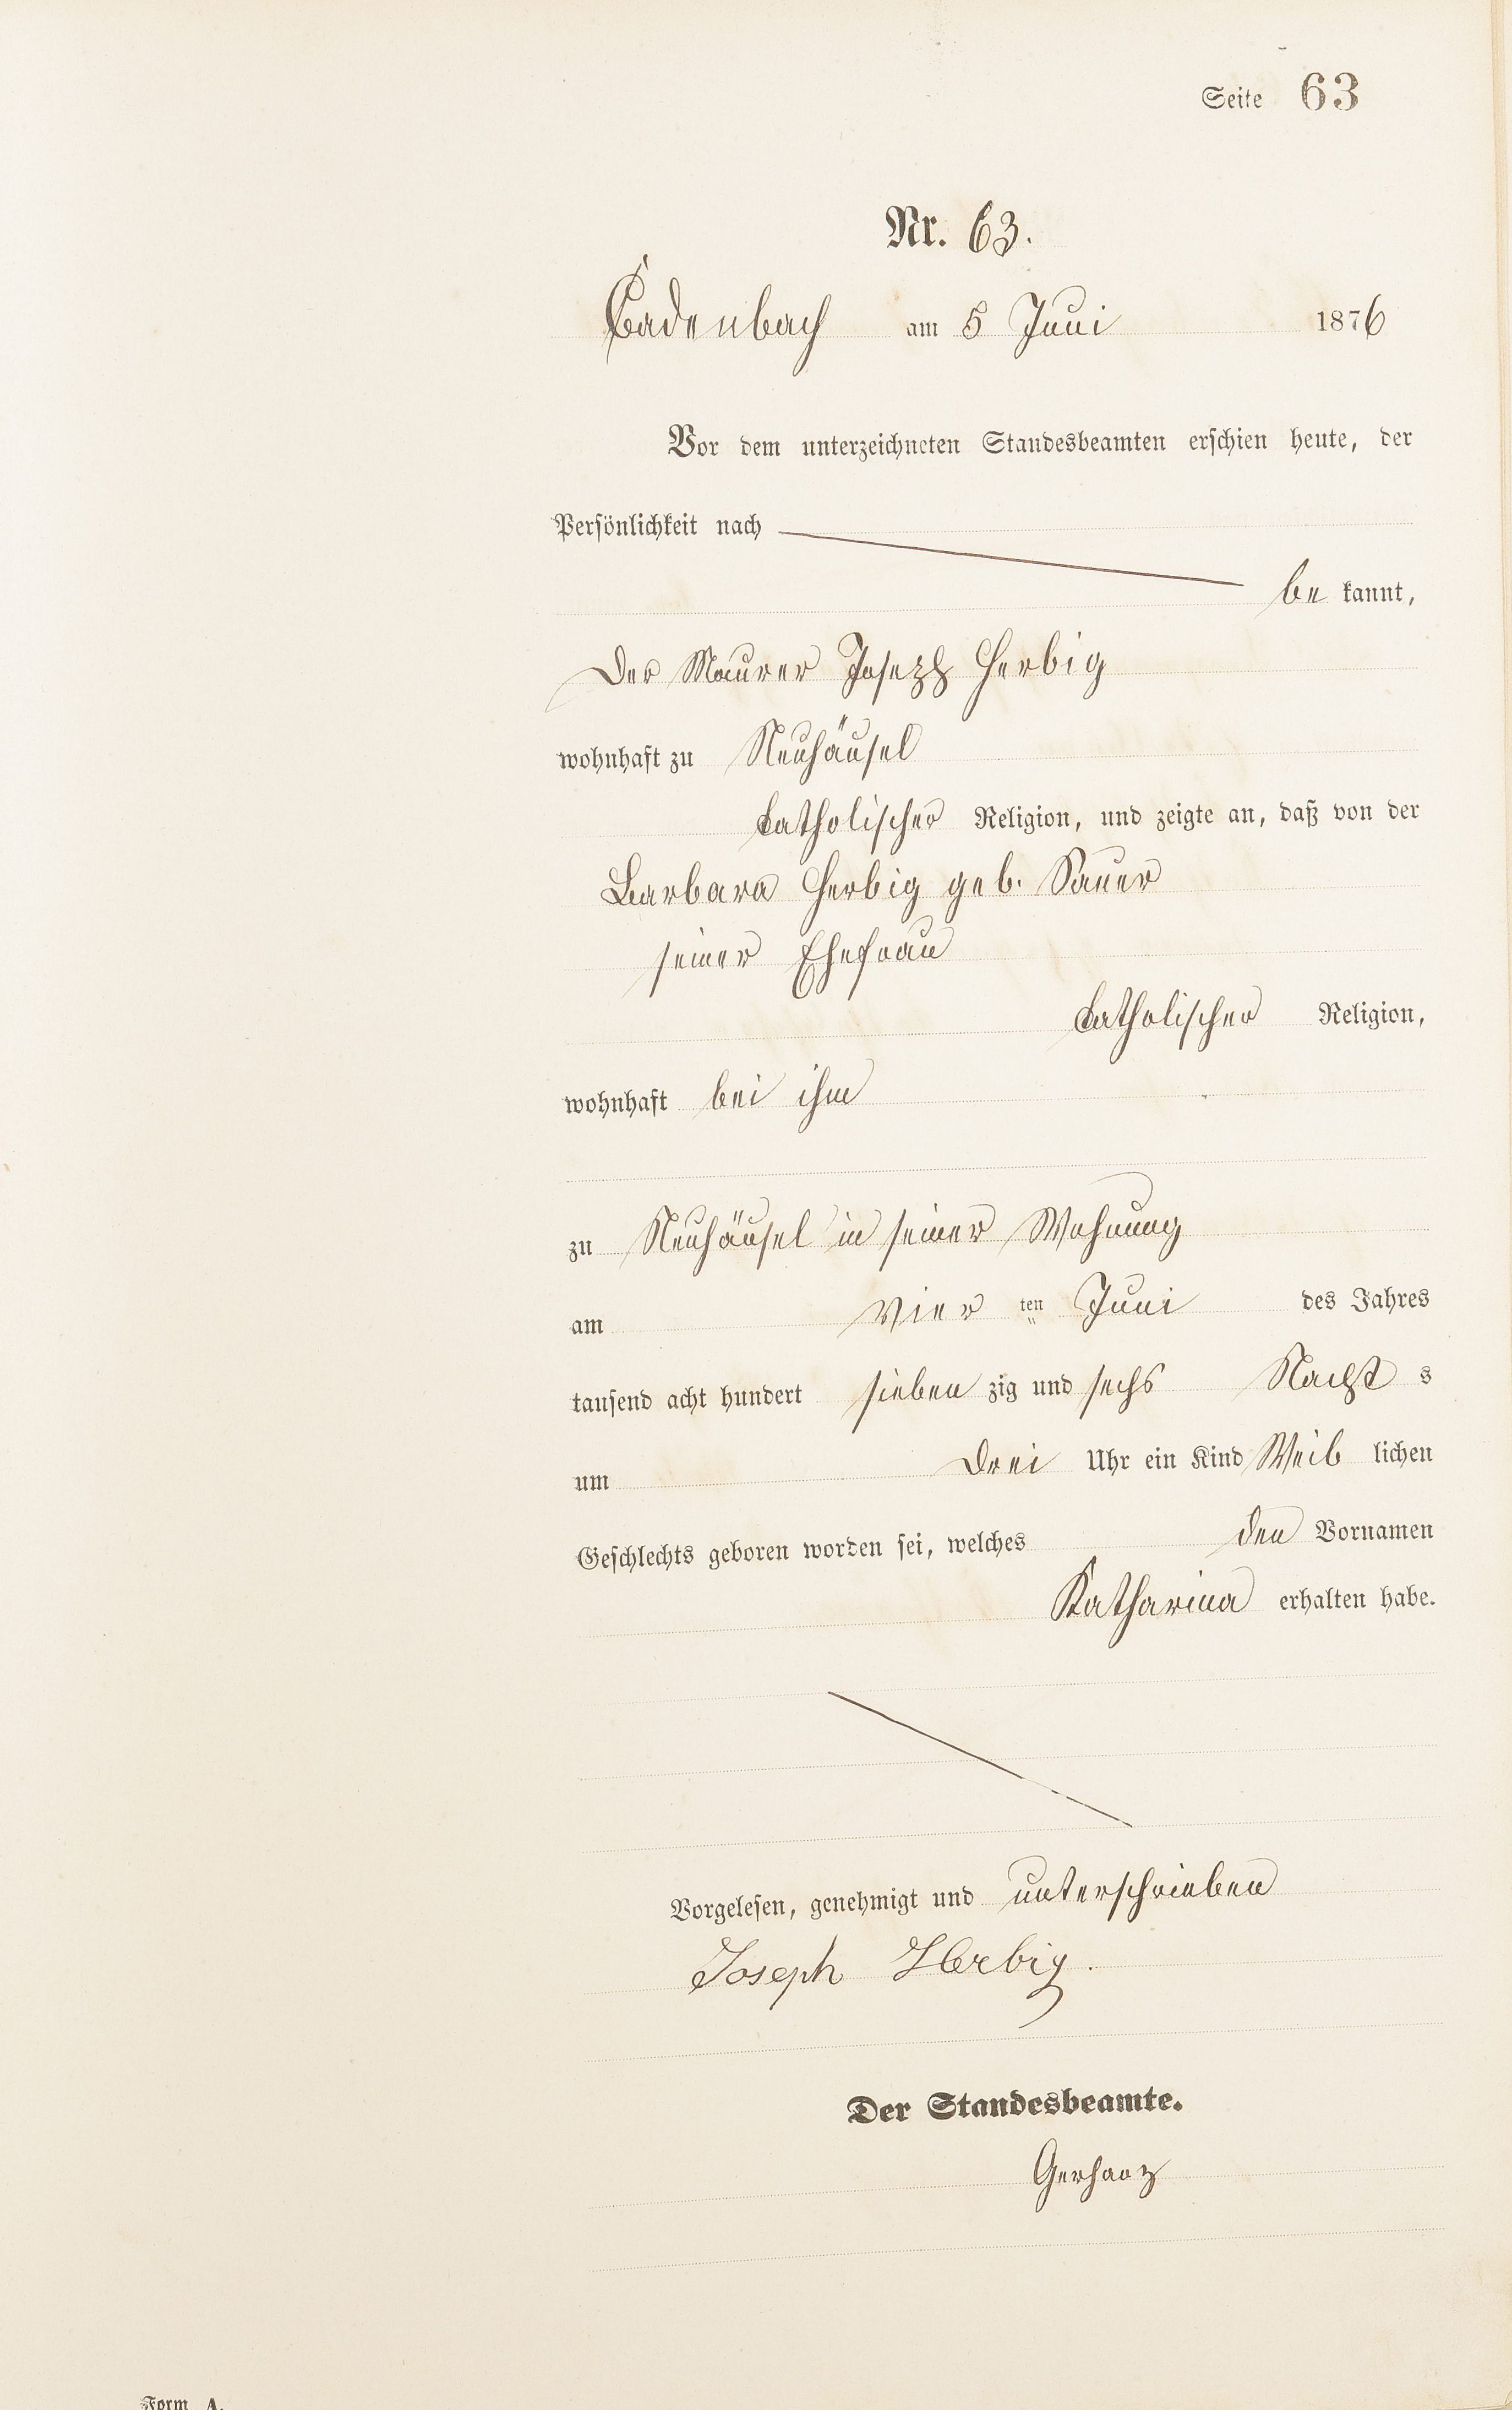 Seite 63
Nr. 63.
Cadenbach am 5 Juni 1876
Vor dem unterzeichneten Standesbeamten erschien heute, der
Persönlichkeit nach
be kannt,
Der Maurer Joseph Herbig
wohnhaft zu Neuhäusel
katholischer Religion, und zeigte an, daß von der
Barbara Herbig geb. Sauer
seiner Ehefrau
katholischer Religion,
wohnhaft bei ihm
zu Neuhäusel in seiner Wohnung
am vier ten Juni des Jahres
tausend acht hundert sieben zig und sechs Nacht s
um Drei Uhr ein Kind Weib lichen
Geschlechts geboren worden sei, welches den Vornamen
Katharina erhalten habe.
Vorgelesen, genehmigt und unterschrieben
Joseph Herbig.
Der Standesbeamte.
Gerharz
Form A.